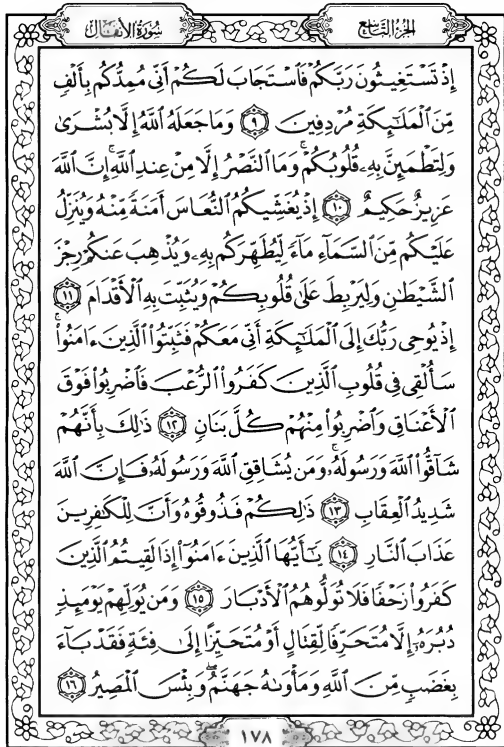 الجزء التاسع
سورة الأنفال
إِذْ تَسْتَغِيثُونَ رَبَّكُمْ فَٱسْتَجَابَ لَكُمْ أَنِّى مُمِدُّكُم بِأَلْفٍ
مِّنَ ٱلْمَلَٰٓئِكَةِ مُرْدِفِينَ ۝٩ وَمَا جَعَلَهُ ٱللَّهُ إِلَّا بُشْرَىٰ
وَلِتَطْمَئِنَّ بِهِۦ قُلُوبُكُمْ ۚ وَمَا ٱلنَّصْرُ إِلَّا مِنْ عِندِ ٱللَّهِ ۚ إِنَّ ٱللَّهَ
عَزِيزٌ حَكِيمٌ ۝١٠ إِذْ يُغَشِّيكُمُ ٱلنُّعَاسَ أَمَنَةً مِّنْهُ وَيُنَزِّلُ
عَلَيْكُم مِّنَ ٱلسَّمَآءِ مَآءً لِّيُطَهِّرَكُم بِهِۦ وَيُذْهِبَ عَنكُمْ رِجْزَ
ٱلشَّيْطَٰنِ وَلِيَرْبِطَ عَلَىٰ قُلُوبِكُمْ وَيُثَبِّتَ بِهِ ٱلْأَقْدَامَ ۝١١
إِذْ يُوحِى رَبُّكَ إِلَى ٱلْمَلَٰٓئِكَةِ أَنِّى مَعَكُمْ فَثَبِّتُوا۟ ٱلَّذِينَ ءَامَنُوا۟ ۚ
سَأُلْقِى فِى قُلُوبِ ٱلَّذِينَ كَفَرُوا۟ ٱلرُّعْبَ فَٱضْرِبُوا۟ فَوْقَ
ٱلْأَعْنَاقِ وَٱضْرِبُوا۟ مِنْهُمْ كُلَّ بَنَانٍ ۝١٢ ذَٰلِكَ بِأَنَّهُمْ
شَآقُّوا۟ ٱللَّهَ وَرَسُولَهُۥ ۚ وَمَن يُشَاقِقِ ٱللَّهَ وَرَسُولَهُۥ فَإِنَّ ٱللَّهَ
شَدِيدُ ٱلْعِقَابِ ۝١٣ ذَٰلِكُمْ فَذُوقُوهُ وَأَنَّ لِلْكَٰفِرِينَ
عَذَابَ ٱلنَّارِ ۝١٤ يَٰٓأَيُّهَا ٱلَّذِينَ ءَامَنُوٓا۟ إِذَا لَقِيتُمُ ٱلَّذِينَ
كَفَرُوا۟ زَحْفًا فَلَا تُوَلُّوهُمُ ٱلْأَدْبَارَ ۝١٥ وَمَن يُوَلِّهِمْ يَوْمَئِذٍ
دُبُرَهُۥٓ إِلَّا مُتَحَرِّفًا لِّقِتَالٍ أَوْ مُتَحَيِّزًا إِلَىٰ فِئَةٍ فَقَدْ بَآءَ
بِغَضَبٍ مِّنَ ٱللَّهِ وَمَأْوَىٰهُ جَهَنَّمُ ۖ وَبِئْسَ ٱلْمَصِيرُ ۝١٦
١٧٨